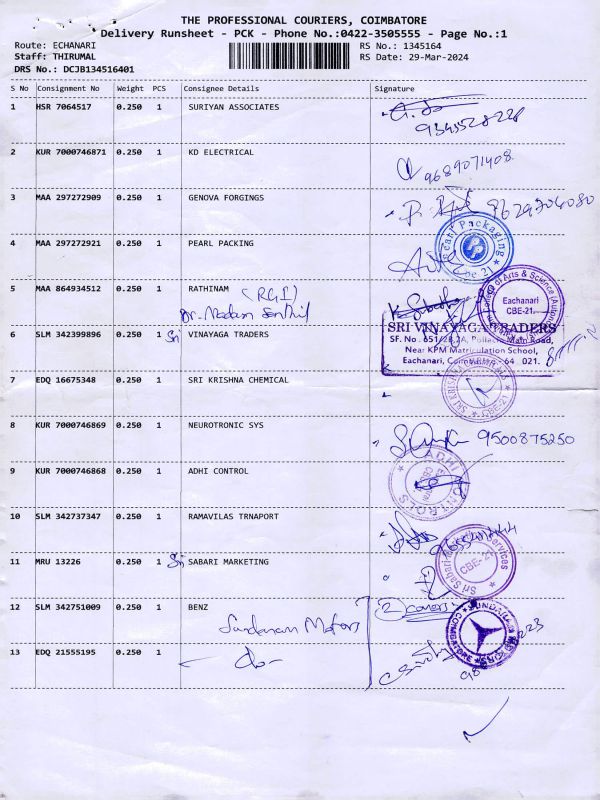 THE PROFESSIONAL COURIERS, COIMBATORE
Delivery Runsheet - PCK - Phone No.:0422-3505555 - Page No.:1
Route: ECHANARI
RS No.: 1345164
Staff: THIRUMAL
RS Date: 29-Mar-2024
DRS No.: DCJB134516401
S No Consignment No Weight PCS Consignee Details Signature
1 HSR 7064517 0.250 1 SURIYAN ASSOCIATES
2 KUR 7000746871 0.250 1 KD ELECTRICAL
9689071408
3 MAA 297272909 0.250 1 GENOVA FORGINGS
9629704080
4 MAA 297272921 0.250 1 PEARL PACKING
Pearl Packaging
PP
Cbe-21
5 MAA 864934512 0.250 1 RATHINAM (RGI)
Dr. Madan Senthil
of Arts & Science
Eachanari
CBE-21.
6 SLM 342399896 0.250 1 Sri VINAYAGA TRADERS
SRI VINAYAGA TRADERS
SF. No. 651/2B,2A, Pollachi Main Road,
Near KPM Matriculation School,
Eachanari, Coimbatore - 64 021.
7 EDQ 16675348 0.250 1 SRI KRISHNA CHEMICAL
CBE-21
8 KUR 7000746869 0.250 1 NEUROTRONIC SYS
9500875250
9 KUR 7000746868 0.250 1 ADHI CONTROL
ADHI CONTROLS
10 SLM 342737347 0.250 1 RAMAVILAS TRNAPORT
11 MRU 13226 0.250 1 Sri SABARI MARKETING
Services
CBE-21
12 SLM 342751009 0.250 1 BENZ
Sundaram Motors
COIMBATORE
13 EDQ 21555195 0.250 1 - do -